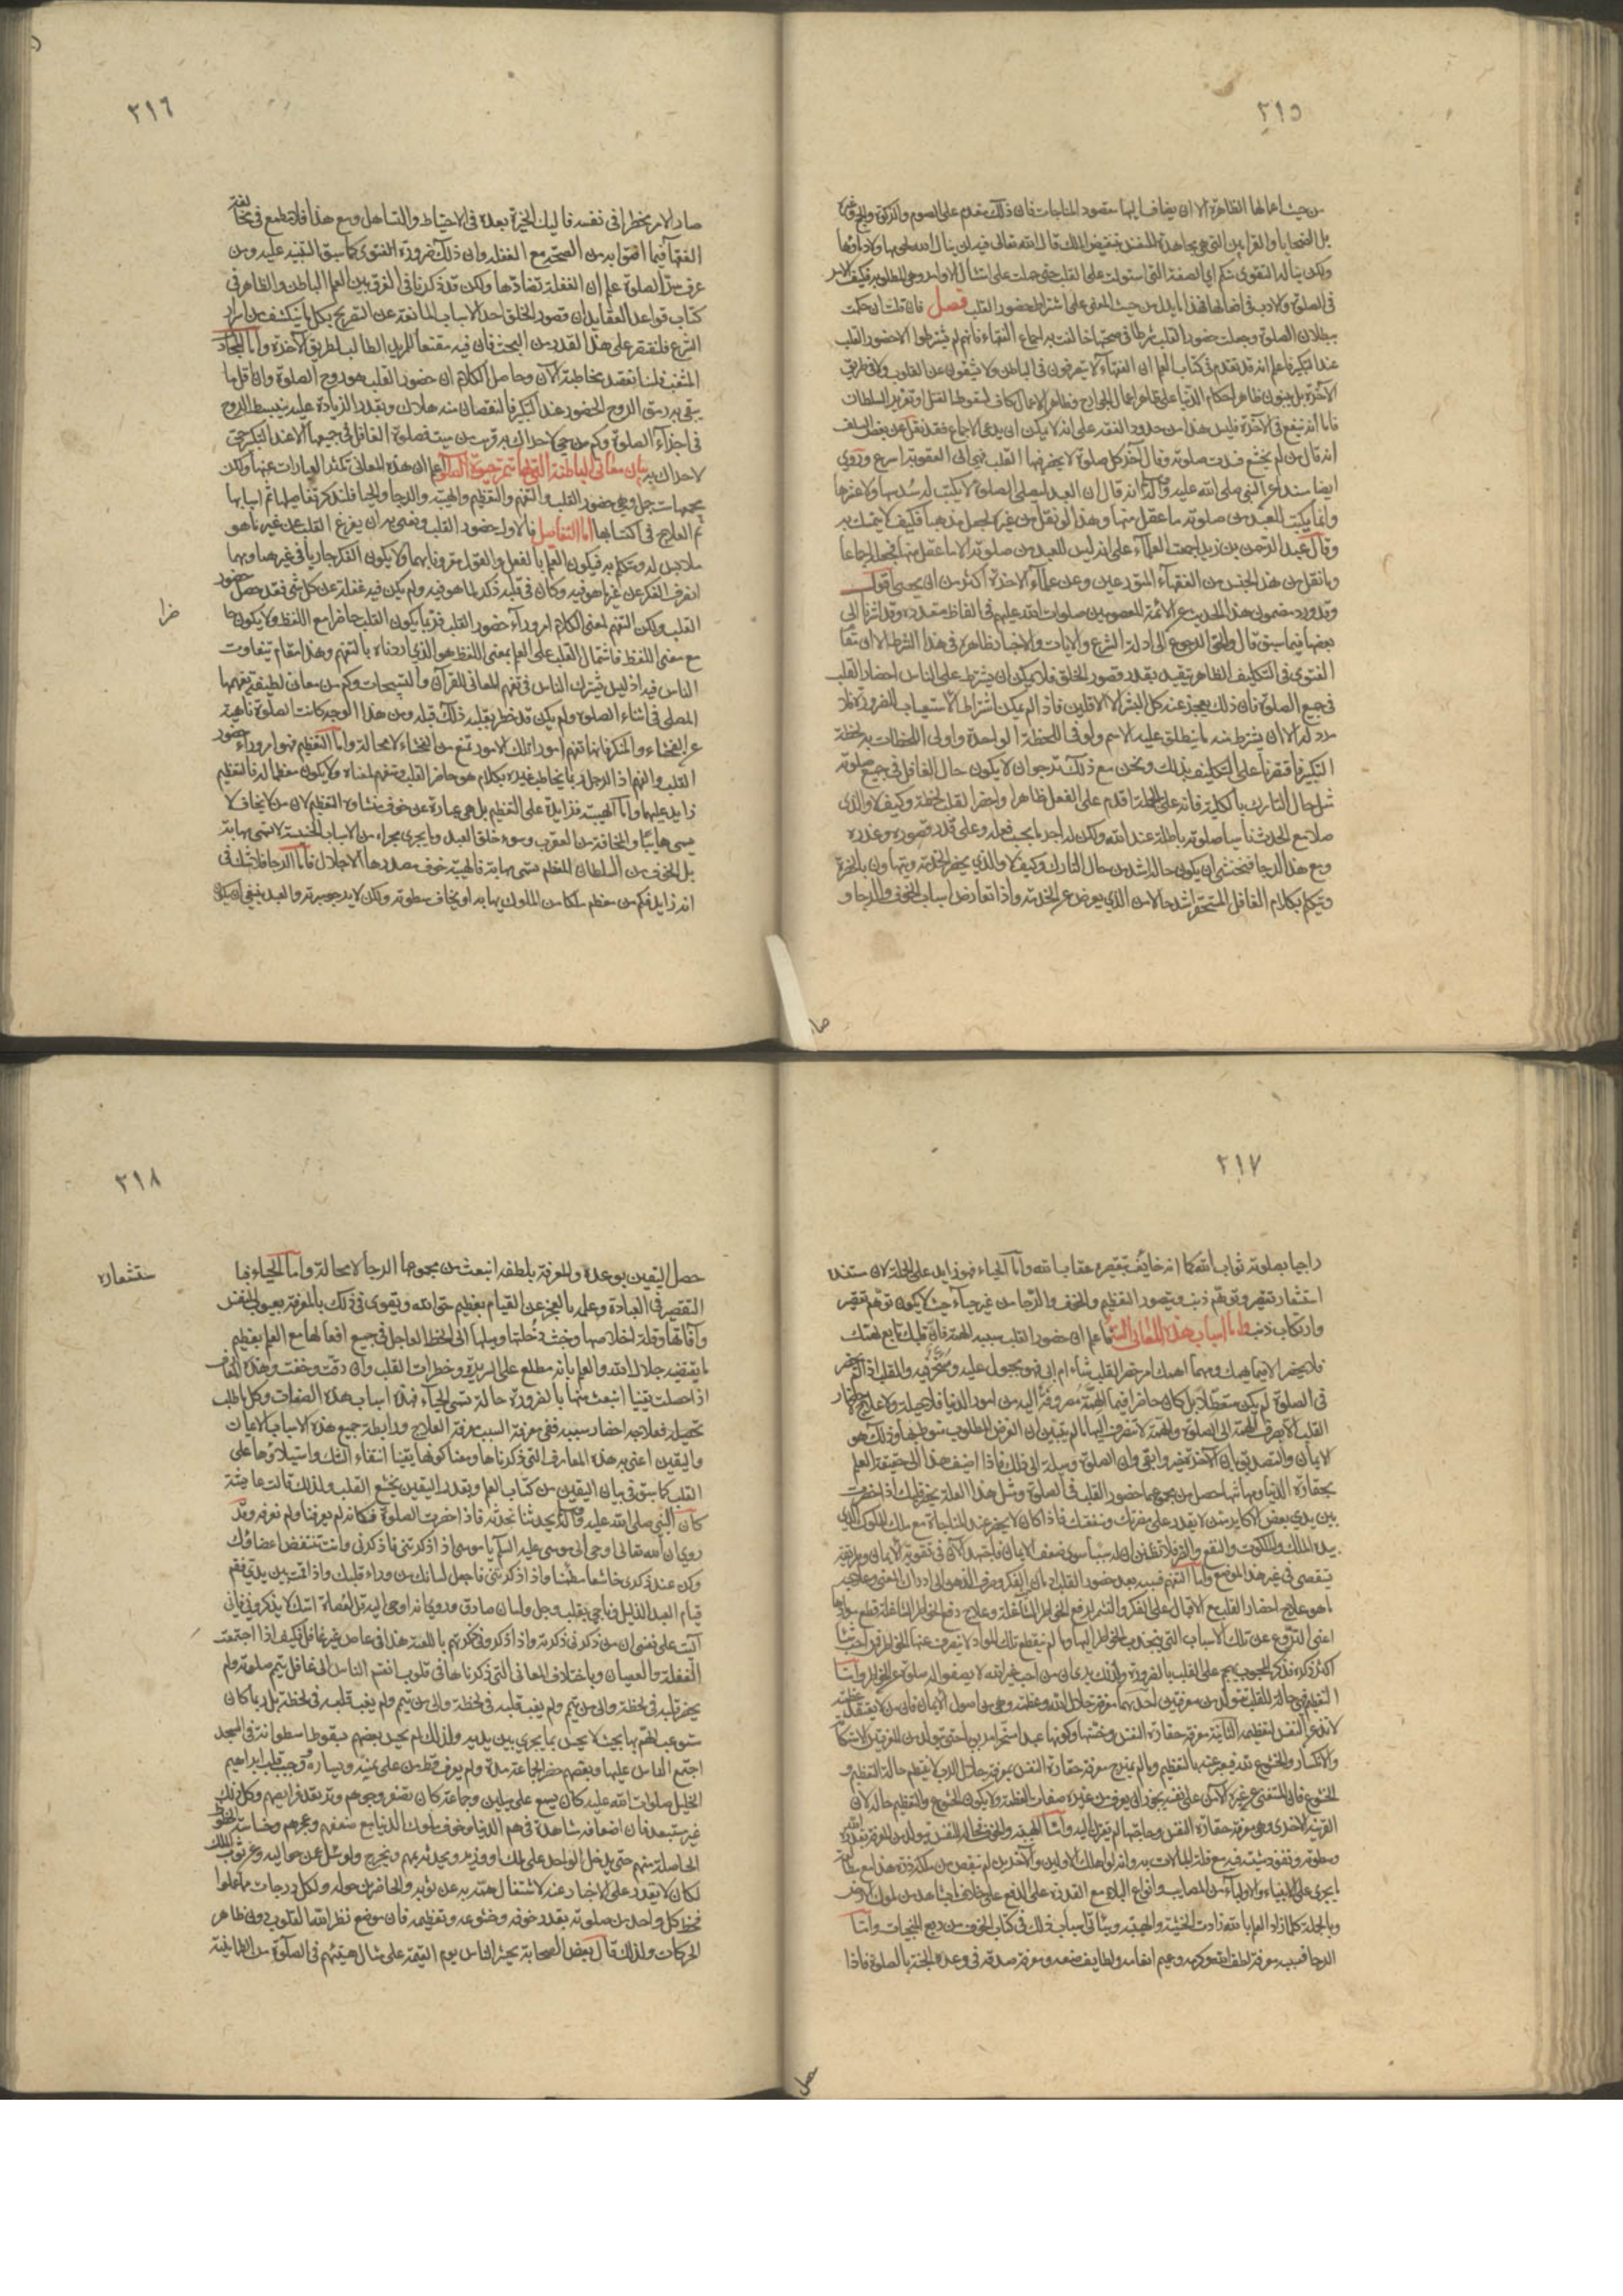 ٢١٥
من حيث اعمالها الظاهرة الا ان يضاف اليها مقصود المناجات فان ذلك مقدم على الصوم والزكوة والحج وغيره
بل الضحايا والقرابين التي هي مجاهدة للنفس بتنقيص المال قال الله تعالى لن ينال الله لحومها ولا دماؤها
ولكن يناله التقوى منكم اي الصفة التي استولت على القلب حتى حملت على امتثال الاوامر هي المطلوبة فكيف الامر
في الصلوة ولا ارب في افعالها فهذا ما يدل من حيث المعنى على اشتراط حضور القلب فصل فان قلت ان حكمت
ببطلان الصلوة وجعلت حضور القلب شرطا في صحتها خالفت اجماع الفقهاء فانهم لم يشترطوا الا حضور القلب
عند التكبير فاعلم انه قد تقدم في كتاب العلم ان الفقهاء لا يتصرفون في الباطن ولا يشقون عن القلوب ولا في طريق
الآخرة بل يبنون ظاهر احكام الدنيا على ظاهر اعمال الجوارح وظاهر الاعمال كاف لسقوط القتل وتعزير السلطان
فاما انه ينفع في الآخرة فليس هذا من حدود الفقه على انه لا يمكن ان يدعى الاجماع فقد نقل عن بعض السلف
انه قال من لم يخشع فسدت صلوته وقال آخر كل صلوة لا يحضر فيها القلب فهي الى العقوبة اسرع وروي
ايضا مسندا عن النبي صلى الله عليه وآله انه قال ان العبد ليصلي الصلوة لا يكتب له سدسها ولا عشرها
وانما يكتب للعبد من صلوته ما عقل منها وهذا لو نقل من غيره لجعل مذهبا فكيف لا يتمسك به
وقال عبد الرحمن بن زيد اجمعت العلماء على انه ليس للعبد من صلوته الا ما عقل منها فجعله اجماعا
وما نقل من هذا الجنس من الفقهاء المتورعين وعن علماء الآخرة اكثر من ان يحصى اقول
وقد ورد مضمون هذا الحديث عن الائمة المعصومين صلوات الله عليهم في الفاظ متعددة وقد اشرنا الى
بعضها فيما سبق قال والحق الرجوع الى ادلة الشرع والآيات والاخبار ظاهرة في هذا الشرط الا ان مقام
الفتوى في التكليف الظاهر يتقيد بقدر قصور الخلق فلا يمكن ان يشترط على الناس احضار القلب
في جميع الصلوة فان ذلك يعجز عنه كل البشر الا الاقلين فاذا لم يمكن اشتراط الاستيعاب للضرورة فلا
مرد له الا ان يشترط منه ما ينطلق عليه الاسم ولو في اللحظة الواحدة واولى اللحظات به لحظة
التكبير فاقتصرنا على التكليف بذلك ونحن مع ذلك نرجو ان لا يكون حال الغافل في جميع صلوته
مثل حال التارك بالكلية فانه على الجملة اقدم على الفعل ظاهرا واحضر القلب لحظة وكيف لا والذي
صلى مع الحدث ناسيا صلوته باطلة عند الله ولكن له اجر ما بحسب فعله وعلى قدر قصوره وعذره
ومع هذا الرجا فيخشى ان يكون حاله اشد من حال التارك وكيف لا والذي يحضر الخدمة ويتهاون بالحضرة
ويتكلم بكلام الغافل المستحقر اشد حالا من الذي يعرض عن الخدمة واذا تعارض اسباب الخوف والرجا و
صار
٢١٦
صار الامر مخطرا في نفسه فاليك الخيرة بعده في الاحتياط والتساهل ومع هذا فلا مطمع في مخالفة
الفقهاء فيما افتوا به من الصحة مع الغفلة وان ذلك ضرورة الفتوى كما سبق التنبيه عليه ومن
عرف سر الصلوة علم ان الغفلة تضادها ولكن قد ذكرنا في الفرق بين العلم الباطن والظاهر في
كتاب قواعد العقايد ان قصور الخلق احد الاسباب المانعة عن التصريح بكل ما ينكشف من اسرار
الشرع فلنقتصر على هذا القدر من البحث فان فيه مقنعا للمريد الطالب لطريق الآخرة واما المجادل
المشغب فلسنا نقصد مخاطبته الآن وحاصل الكلام ان حضور القلب هو روح الصلوة وان اقل ما
يبقى به رمق الروح الحضور عند التكبير فالنقصان منه هلاك وبقدر الزيادة عليه ينبسط الروح
في اجزاء الصلوة وكم من حي لا حراك به قريب من ميت فصلوة الغافل في جميعها الا عند التكبير حي
لا حراك به بيان معاني الباطنة التي بها تتم حيوة الصلوة اعلم ان هذه المعاني تكثر العبارات عنها ولكن
يجمعها ست جمل وهي حضور القلب والتفهم والتعظيم والهيبة والرجا والحيا فلنذكر تفاصيلها ثم اسبابها
ثم العلاج في اكتسابها اما التفاصيل فالاول حضور القلب ونعني به ان يفرغ القلب عن غير ما هو
ملابس له ومتكلم به فيكون العلم بالفعل والقول مقرونا بهما ولا يكون الفكر جاريا في غيرهما ومهما
انصرف الفكر عن غير ما هو فيه وكان في قلبه ذكر لما هو فيه ولم يكن فيه غفلة عن كل شئ فقد حصل حضور
القلب ولكن التفهم لمعنى الكلام امر وراء حضور القلب فربما يكون القلب حاضرا مع اللفظ ولا يكون حا
ضرا
مع معنى اللفظ فاشتمال القلب على العلم بمعنى اللفظ هو الذي اردناه بالتفهم وهذا مقام يتفاوت
الناس فيه اذ ليس يشترك الناس في تفهم المعاني للقرآن والتسبيحات وكم من معان لطيفة يفهمها
المصلي في اثناء الصلوة ولم يكن قد خطر بقلبه ذلك قبله ومن هذا الوجه كانت الصلوة ناهية
عن الفحشاء والمنكر فانها تفهم امورا تلك الامور تمنع من الفحشاء لا محالة واما التعظيم فهو امر وراء حضور
القلب والفهم اذ الرجل ربما يخاطب غيره بكلام هو حاضر القلب ومتفهم لمعناه ولا يكون معظما له فالتعظيم
زايد عليهما واما الهيبة فزايدة على التعظيم بل هي عبارة عن خوف منشاؤه التعظيم لان من لا يخاف لا
يسمى هايبا والمخافة من العقرب وسوء خلق العبد وما يجري مجراه من الاسباب الخسيسة لا تسمى مهابة
بل الخوف من السلطان المعظم يسمى مهابة فالهيبة خوف مصدرها الاجلال فاما الرجا فلا شك في
انه زايد فكم من معظم ملكا من الملوك يهابه او يخاف سطوته ولكن لا يرجو مبرته والعبد ينبغي ان يكون
٢١٧
راجيا بصلوته ثواب الله كما انه خايف بتقصيره عقاب الله واما الحياء فهو زايد على الجملة لان مستنده
استشعار تقصير وتوهم ذنب ويتصور التعظيم والخوف والرجا من غير حياء حيث لا يكون توهم تقصير
وارتكاب ذنب واما اسباب هذه المعاني الستة فاعلم ان حضور القلب سببه الهمة فان قلبك تابع لهمتك
فلا يحضر الا فيما يهمك ومهما اهمك امر حضر القلب شاء ام ابى فهو مجبول عليه ومسخر فيه والقلب اذا لم يحضر
في الصلوة لم يكن متعطلا بل كان حاضرا فيما الهمة مصروفة اليه من امور الدنيا فلا حيلة ولا علاج لاحضار
القلب الا بصرف الهمة الى الصلوة والهمة لا تنصرف اليها ما لم يتبين ان الغرض المطلوب منوط بها وذلك هو
الايمان والتصديق بان الآخرة خير وابقى وان الصلوة وسيلة الى ذلك فاذا اضيف هذا الى حقيقة العلم
بحقارة الدنيا ومهانتها حصل من مجموعها حضور القلب في الصلوة وبمثل هذا العلة يحضر قلبك اذا حضرت
بين يدي بعض الاكابر ممن لا يقدر على مضرتك ومنفعتك فاذا كان لا يحضر عند المناجاة مع ملك الملوك الذي
بيده الملك والملكوت والنفع والضر فلا تظنن ان له سببا سوى ضعف الايمان فاجتهد الآن في تقوية الايمان وطريقه
يستقصى في غير هذا الموضع واما التفهم فسببه بعد حضور القلب ادمان الفكر وصرف الذهن الى ادراك المعنى وعلاجه
ما هو علاج احضار القلب مع الاقبال على الفكر والتشمر لدفع الخواطر الشاغلة وعلاج دفع الخواطر الشاغلة قطع موادها
اعني النزوع عن تلك الاسباب التي ينجذب الخواطر اليها وما لم ينقطع تلك المواد لا ينصرف عنها الخواطر فمن احب شيئا
اكثر ذكره فذكر المحبوب يهجم على القلب بالضرورة ولذلك يرى ان من احب غير الله لا يصفو له صلوة عن الخواطر واما
التعظيم فهي حالة للقلب يتولد من معرفتين احديهما معرفة جلال الله وعظمته وهي من اصول الايمان فان من لا يعتقد عظمته
لا تذعن النفس لتعظيمه الثانية معرفة حقارة النفس وخستها وكونها عبدا مسخرا مربوبا حتى يتولد من المعرفتين الاستكانة
والانكسار والخشوع لله فيعبر عنه بالتعظيم وما لم يمتزج معرفة حقارة النفس بمعرفة جلال الرب لا ينتظم حالة التعظيم و
الخشوع فان المستغني عن غيره الآمن على نفسه يجوز ان يعرف من غيره صفات العظمة ولا يكون الخشوع والتعظيم حاله لان
القرينة الاخرى وهي معرفة حقارة النفس وحاجتها لم يقترن اليه واما الهيبة والخوف فحالة للنفس يتولد من المعرفة بقدرة الله
وسطوته ونفوذ مشيته فيه مع قلة المبالات به وانه لو اهلك الاولين والآخرين لم ينقص من ملكه ذرة هذا مع مطالعة
ما يجري على الانبياء والاولياء من المصايب وانواع البلاء مع القدرة على الدفع على خلاف ما يشاهد من ملوك الارض
وبالجملة كلما زاد العلم بالله زادت الخشية والهيبة وسيأتي اسباب ذلك في كتاب الخوف من ربع المنجيات واما
الرجا فسببه معرفة لطف الله وكرمه وعميم انعامه ولطايف صنعه ومعرفة صدقه في وعده الجنة بالصلوة فاذا
حصل
٢١٨
حصل اليقين بوعده والمعرفة بلطفه انبعث من مجموعها الرجا لا محالة واما الحياء فبا
ستشعاره
التقصير في العبادة وعلمه بالعجز عن القيام بعظيم حق الله ويقوى ذلك بالمعرفة بعيوب النفس
وآفاتها وقلة اخلاصها وخبث دخلتها وميلها الى الحظ العاجل في جميع افعالها مع العلم بعظيم
ما يقتضيه جلال الله والعلم بانه مطلع على السريرة وخطرات القلب وان دقت وخفت وهذه المعارف
اذا حصلت يقينا انبعث منها بالضرورة حالة تسمى الحياء فهذه اسباب هذه الصفات وكل ما طلب
تحصيله فعلاجه احضار سببه ففي معرفة السبب معرفة العلاج ورابطة جميع هذه الاسباب الايمان
واليقين اعني به هذه المعارف التي ذكرناها ومعنى كونها يقينا انتفاء الشك واستيلاؤها على
القلب كما سبق في بيان اليقين من كتاب العلم وبقدر اليقين يخشع القلب ولذلك قالت عايشة
كان النبي صلى الله عليه وآله يحدثنا ونحدثه فاذا حضرت الصلوة فكانه لم يعرفنا ولم نعرفه وقد
روي ان الله تعالى اوحى الى موسى عليه السلام يا موسى اذا ذكرتني فاذكرني وانت تنتفض اعضاؤك
وكن عند ذكري خاشعا مطمئنا واذا ذكرتني فاجعل لسانك من وراء قلبك واذا قمت بين يدي فقم
قيام العبد الذليل وناجني بقلب وجل ولسان صادق وروي انه اوحى اليه قل لعصاة امتك لا يذكروني فاني
آليت على نفسي ان من ذكرني ذكرته واذا ذكروني ذكرتهم باللعنة هذا في عاص غير غافل فكيف اذا اجتمعت
الغفلة والعصيان وباختلاف المعاني التي ذكرناها في قلوب انقسم الناس الى غافل يتم صلوته ولم
يحضر قلبه في لحظة والى من يتم ولم يغب قلبه في لحظة بل ربما كان
مستوعب الهم بها بحيث لا يحس بما يجري بين يديه ولذلك لم يحس بعضهم بسقوط اسطوانة في المسجد
اجتمع الناس عليها وبعضهم حضر الجماعة مدة ولم يعرف قط من على يمينه ويساره ووجيب قلب ابراهيم
الخليل صلوات الله عليه كان يسمع على ميلين وجماعة كان تصفر وجوههم وترتعد فرايصهم وكل ذلك
غير مستبعد فان اضعافه مشاهدة في هم الدنيا وخوف ملوك الدنيا مع ضعفهم وعجزهم وخساسة الحظوظ
الحاصلة منهم حتى يدخل الواحد على ملك او وزير ويحدثه بمهم ويخرج ولو سئل عمن حواليه وعن ثوب الملك
لكان لا يقدر على الاخبار عنه لاشتغال همته به عن ثوبه والحاضرين حوله ولكل درجات مما عملوا
فحظ كل واحد من صلوته بقدر خوفه وخشوعه وتعظيمه فان موضع نظر الله القلوب دون ظاهر
الحركات ولذلك قال بعض الصحابة يحشر الناس يوم القيمة على مثال هيئتهم في الصلوة من الطمانينة